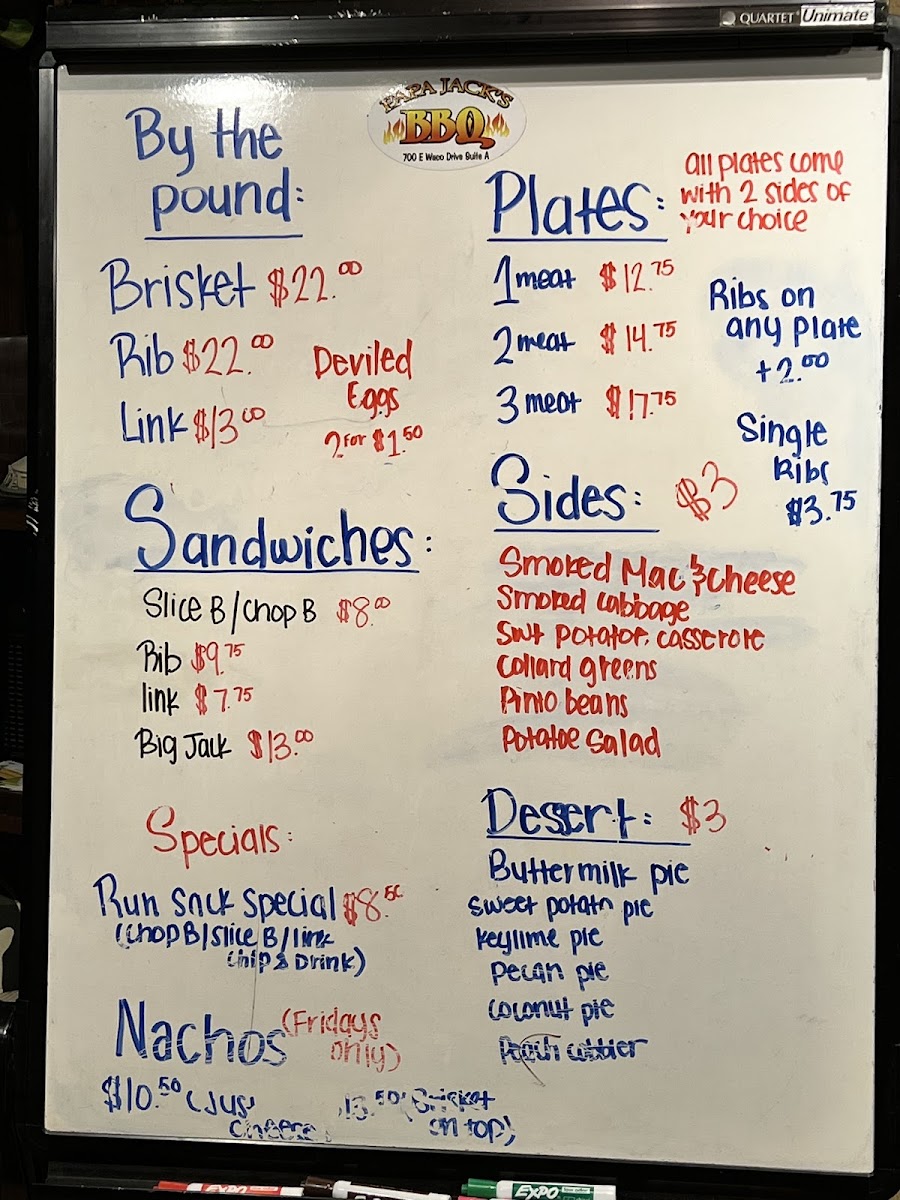 QUARTET Unimate
PAPA JACK'S
BBQ
700 E Waco Drive Suite A
By the
pound:
Brisket $22.00
Rib $22.00
Link $13.00
Deviled
Eggs
2 for $1.50
Sandwiches:
Slice B/Chop B $8.00
Rib $9.75
link $7.75
Big Jack $13.00
Specials:
Run Sack Special $8.50
(Chop B/Slice B/link
Chip & Drink)
Nachos (Fridays
only)
$10.50 (Jus
cheese)
13.50 (Brisket
on top)
Plates:
all plates come
with 2 sides of
your choice
1 meat $12.75
2 meat $14.75
3 meat $17.75
Ribs on
any plate
+2.00
Single
Ribs
$3.75
Sides: $3
Smoked Mac & Cheese
Smoked cabbage
Swt potatoe casserole
Collard greens
Pinto beans
Potatoe Salad
Desert: $3
Buttermilk pie
Sweet potato pie
Keylime pie
Pecan pie
Coconut pie
Peach cobbler
EXPO
EXPO